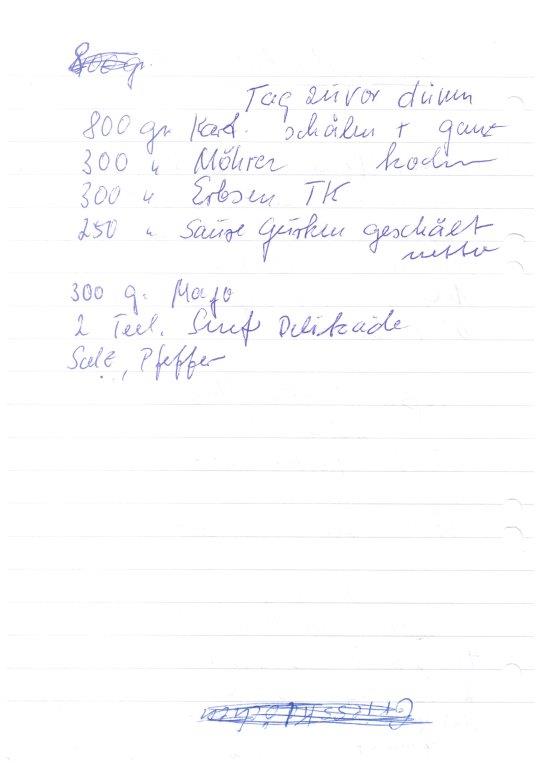 Tag zuvor dünn
800 gr. Kart. schälen + ganz
300 " Möhren kochen
300 " Erbsen TK
250 " saure Gurken geschält
netto
300 g. Mayo
2 Teel. Senf
Salz, Pfeffer